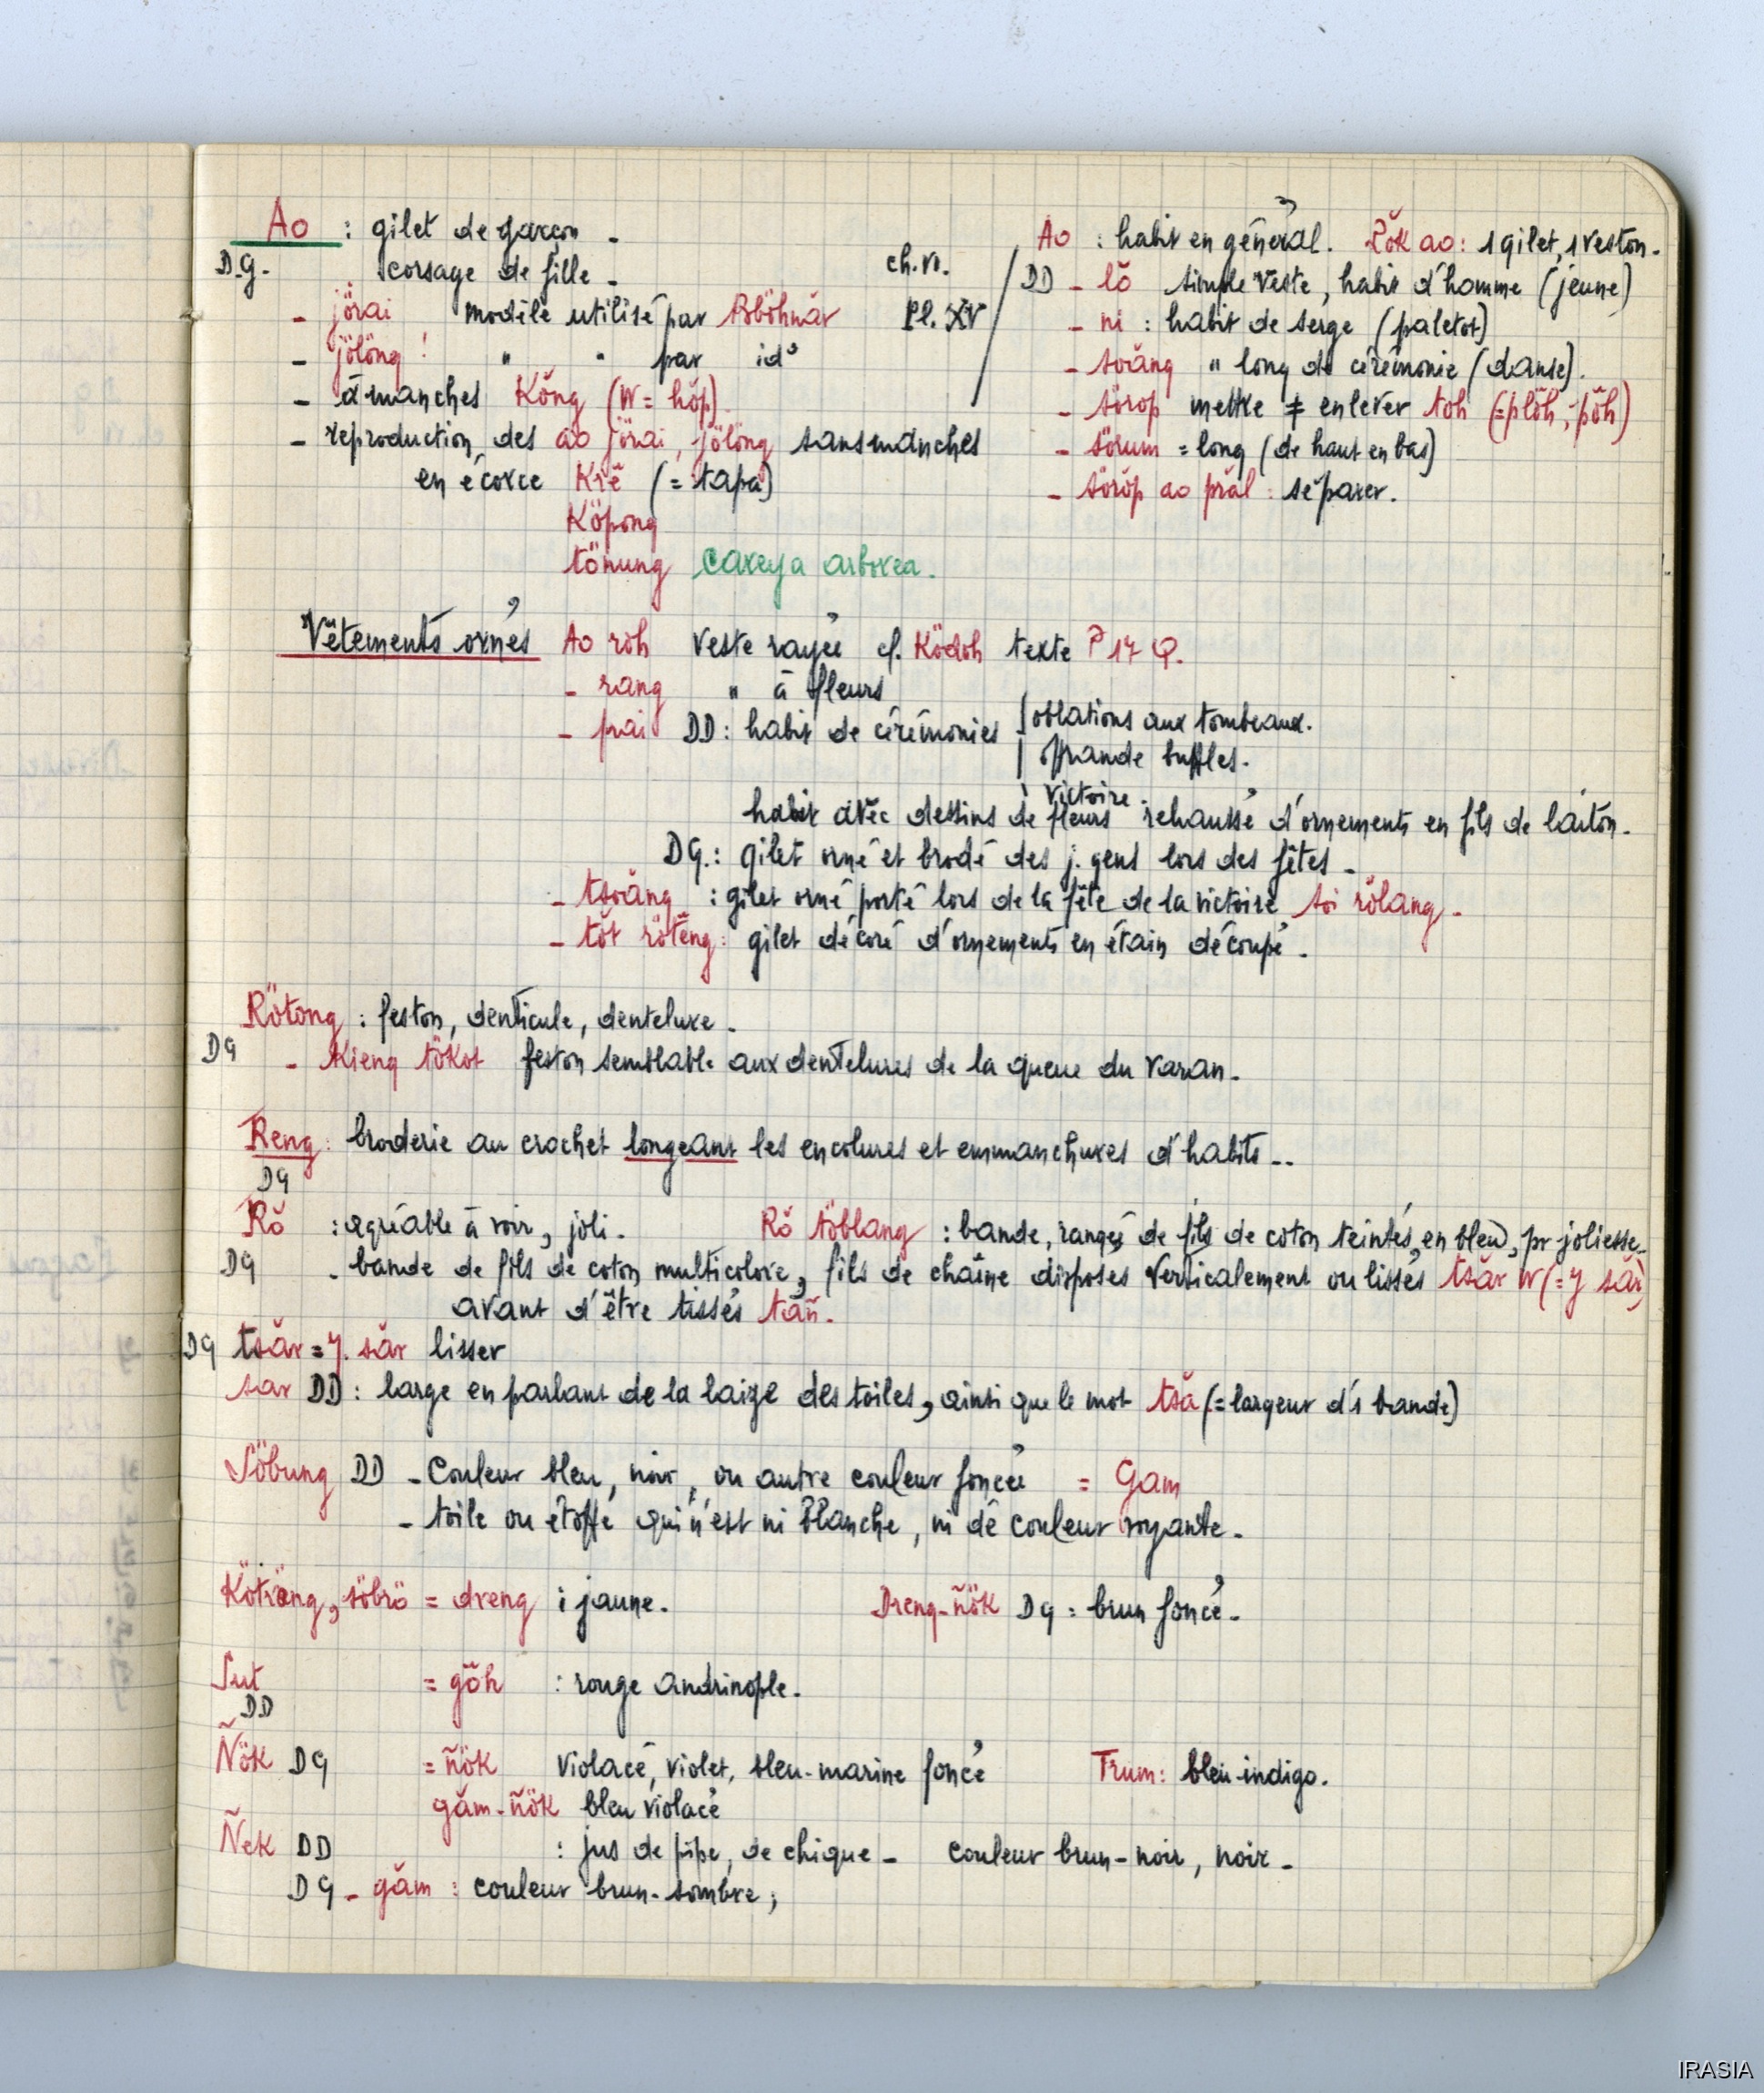 Ao : gilet de garçon -
D.g. corsage de fille - ch. VI.
- jörai modèle utilisé par Böhnăr Pl. XV
- jölöng ! " " par id°
- à manches Kŏng (W = hŏp).
- reproduction des ao jörai, jölöng sans manches
en écorce Krĕ (= tapa)
Köpong
tönung Careya arborea.
Ao : habit en général. Pŏk ao : 1 gilet, 1 veston.
DD - lŏ simple veste, habit d'homme (jeune)
- ni : habit de serge (paletot)
- soăng " long de cérémonie (danse).
- sörop mettre ≠ enlever toh (= plŏh, pŏh)
- sörum = long (de haut en bas)
- söröp ao präl : se parer.
Vêtements ornés Ao roh veste rayée cf. Ködoh texte P 17 Q.
- rang " à fleurs
- pai DD : habit de cérémonies oblations aux tombeaux.
offrande buffles.
victoire.
habit avec dessins de fleurs rehaussé d'ornements en fils de laiton.
DG. : gilet orné et brodé des j. gens lors des fêtes -
- tsoăng : gilet orné porté lors de la fête de la victoire soi rölang -
- tŏt rötĕng : gilet décoré d'ornements en étain découpé -
Rötong : feston, denticule, dentelure -
DG - Kieng tökot feston semblable aux dentelures de la queue du varan -
Reng : broderie au crochet longeant les encolures et emmanchures d'habits --
DG
Rŏ : agréable à voir, joli. Rŏ töblang : bande, rangée de fils de coton teintés, en bleu, pr joliesse -
DG - bande de fils de coton multicolore, fils de chaîne disposés verticalement ou lissés tsăr W (= y săr)
avant d'être tissés tañ.
DG tsăr = y. săr lisser
sar DD : large en parlant de la laize des toiles, ainsi que le mot tsă (= largeur d'1 bande)
Söbung DD - Couleur bleu, noir, ou autre couleur foncée = Gam
- toile ou étoffe qui n'est ni blanche, ni de couleur voyante -
Köträng, söbrö = dreng : jaune. Dreng-ñök DG : brun foncé -
Sut = gŏh : rouge andrinople -
DD
Ñŏk DG = ñŏk violacé, violet, bleu-marine foncé Trum : bleu-indigo.
găm-ñŏk bleu violacé
Ñek DD : jus de pipe, de chique - couleur brun-noir, noir -
DG - găm : couleur brun-sombre ;
IRASIA